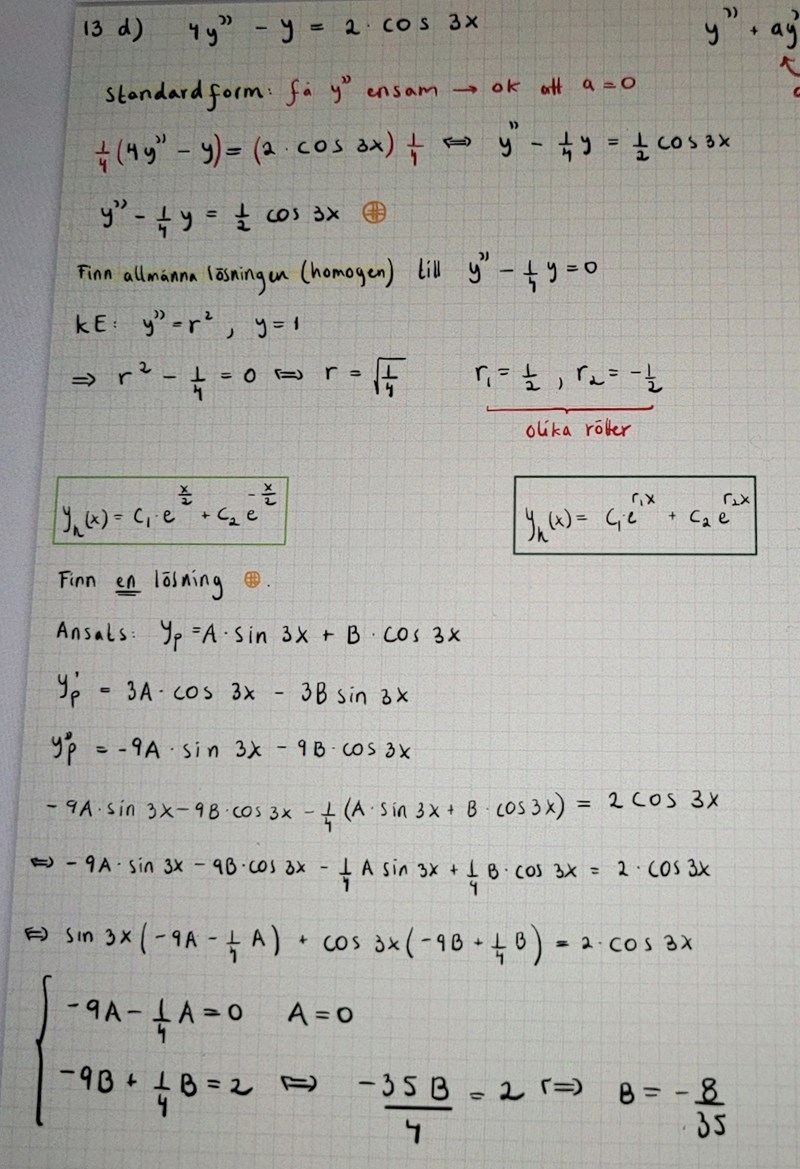 13 d) 4y'' - y = 2 · cos 3x y'' + ay'
standardform: få y'' ensam → ok att a = 0
1/4 (4y'' - y) = (2 · cos 3x) 1/4 ⇔ y'' - 1/4 y = 1/2 cos 3x
y'' - 1/4 y = 1/2 cos 3x ⊕
Finn allmänna lösningen (homogen) till y'' - 1/4 y = 0
kE: y'' = r², y = 1
⇒ r² - 1/4 = 0 ⇔ r = √(1/4) r₁ = 1/2, r₂ = -1/2
olika rötter
yₕ(x) = C₁ · e^(x/2) + C₂ e^(-x/2) yₕ(x) = C₁ · e^(r₁x) + C₂ e^(r₂x)
Finn en lösning ⊕.
Ansats: yₚ = A · sin 3x + B · cos 3x
yₚ' = 3A · cos 3x - 3B sin 3x
yₚ'' = -9A · sin 3x - 9B · cos 3x
-9A · sin 3x - 9B · cos 3x - 1/4 (A · sin 3x + B · cos 3x) = 2 cos 3x
⇔ -9A · sin 3x - 9B · cos 3x - 1/4 A sin 3x + 1/4 B · cos 3x = 2 · cos 3x
⇔ sin 3x (-9A - 1/4 A) + cos 3x (-9B + 1/4 B) = 2 · cos 3x
-9A - 1/4 A = 0 A = 0
-9B + 1/4 B = 2 ⇔ -35B/4 = 2 ⇔ B = -8/35